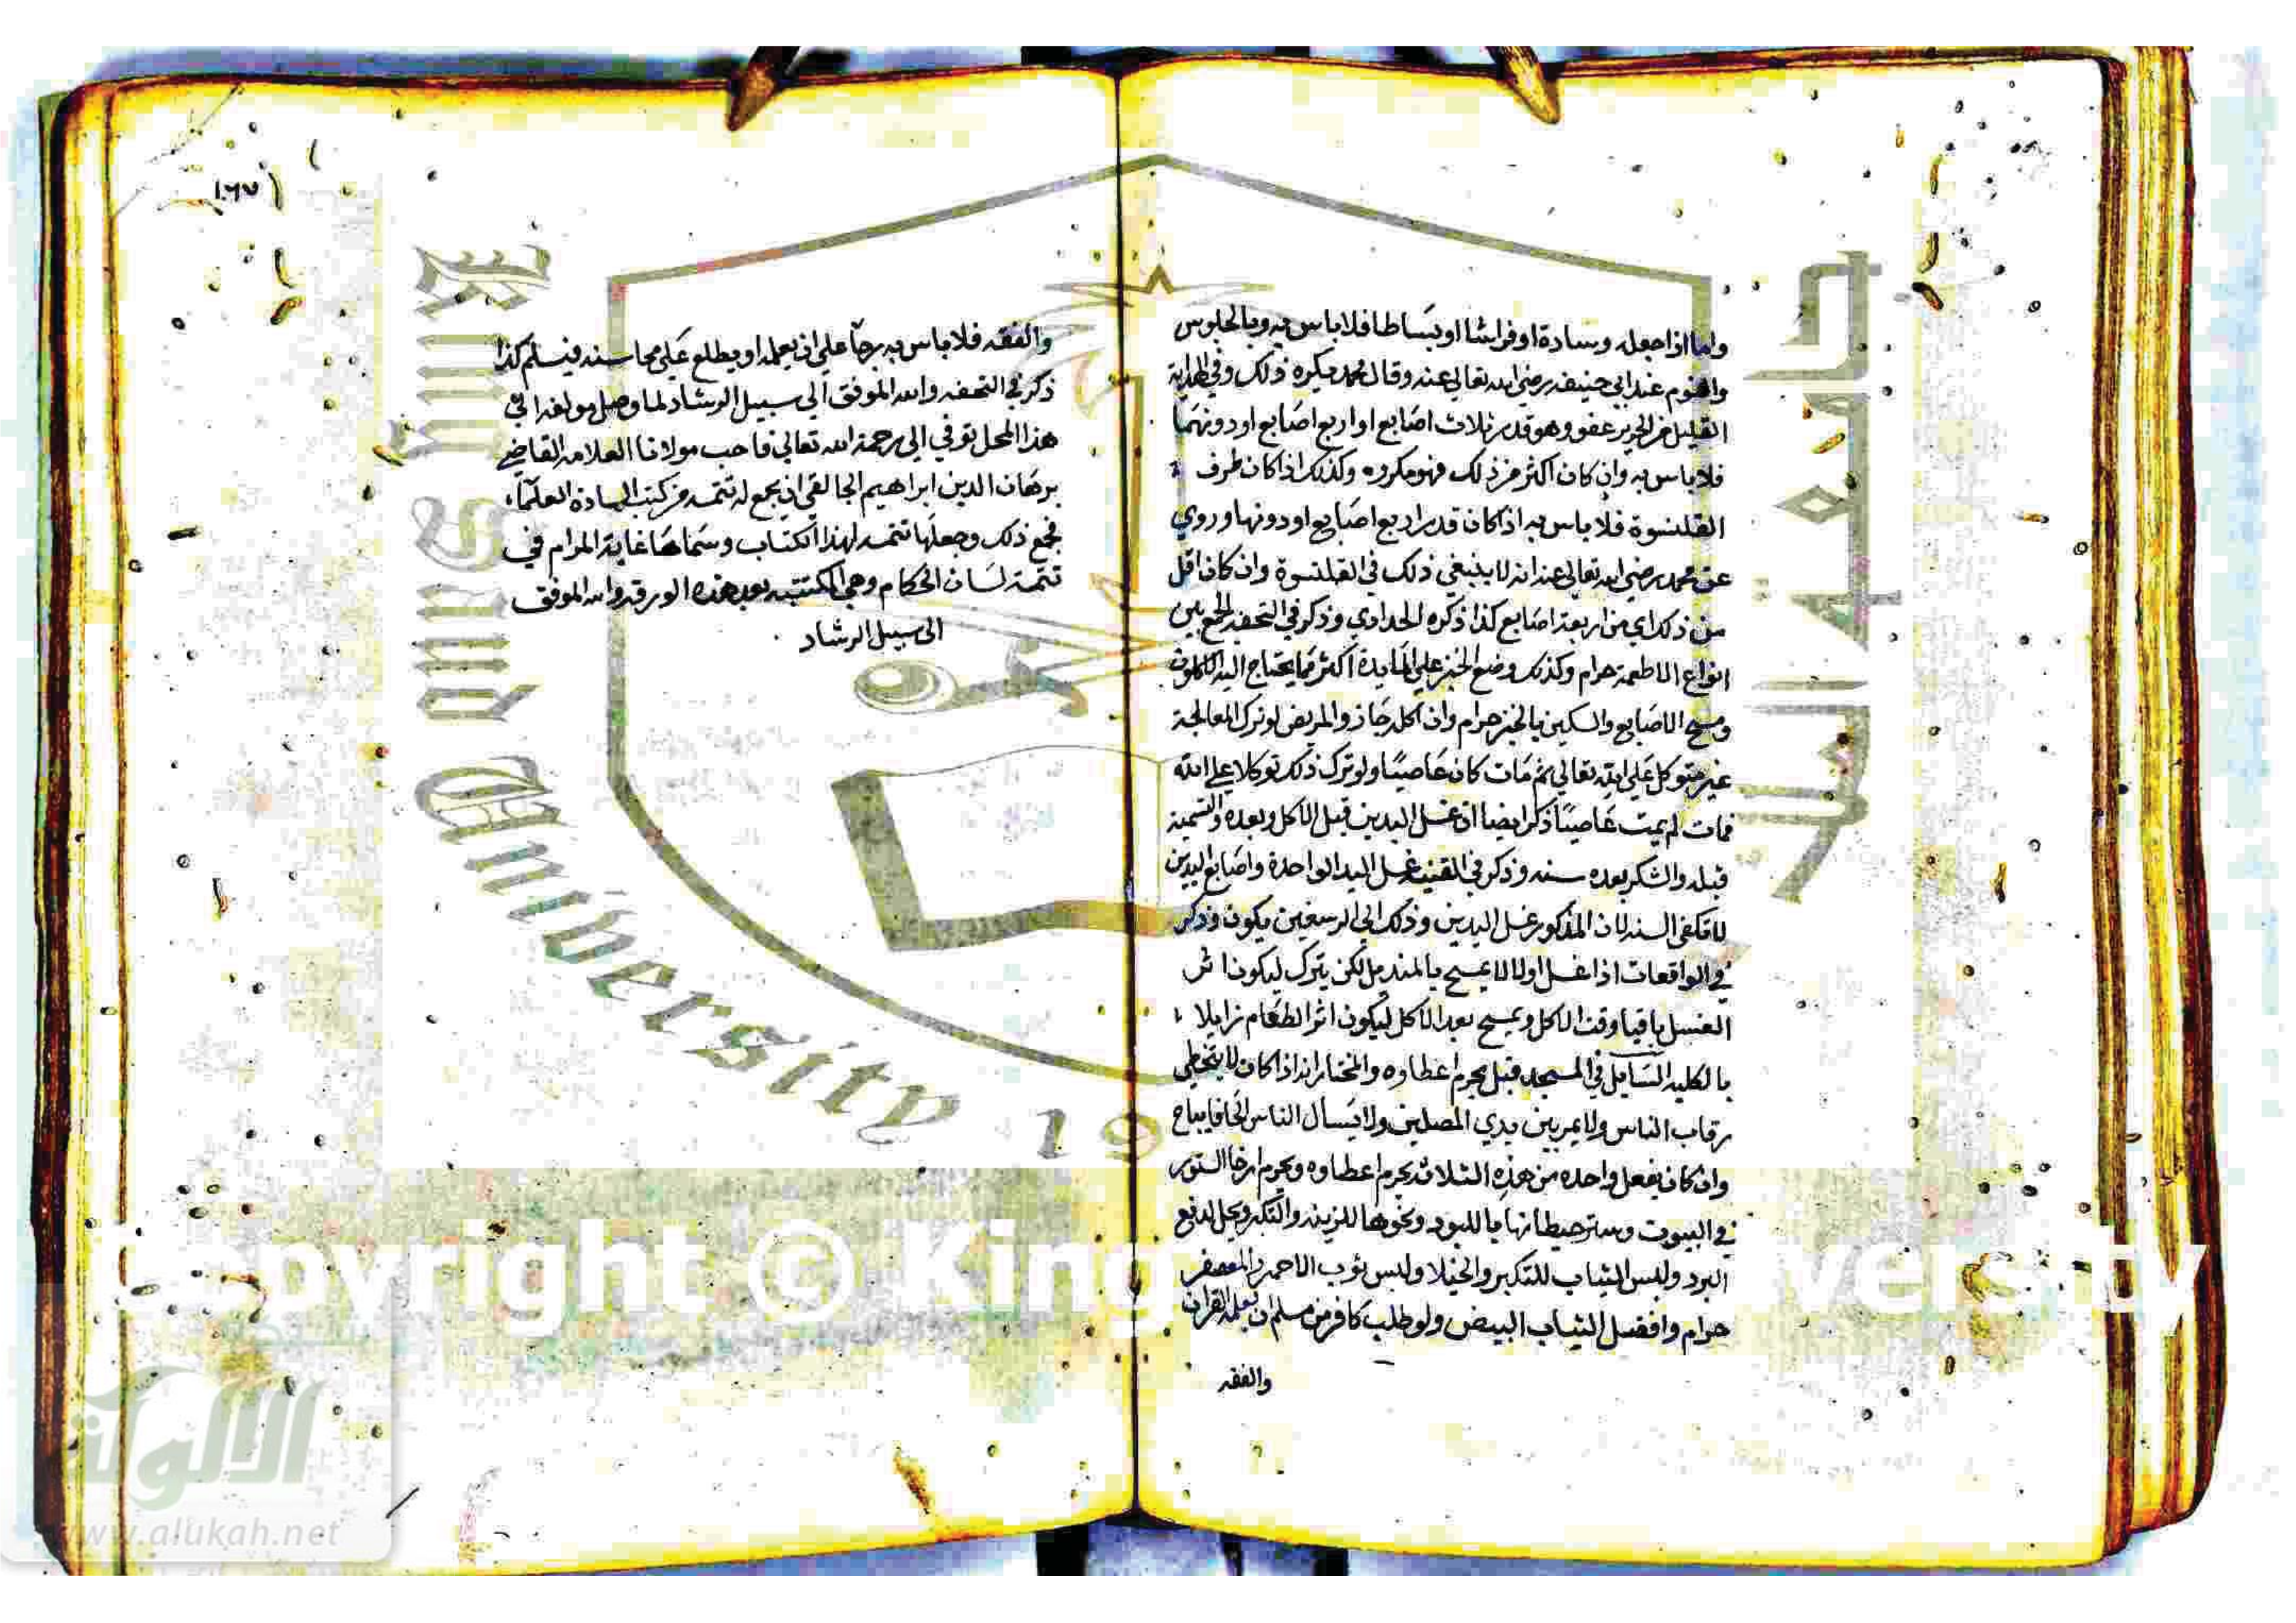 واما اذا جعله وسادة او فراشا او بساطا فلا باس به وبالجلوس
والنوم عند ابي حنيفه رضي الله تعالى عنه وقال محمد يكره ذلك وفي الهداية
القليل من الحرير عفو وهو قدر ثلاث اصابع او اربع اصابع او دونهما
فلا باس به وان كان اكثر من ذلك فهو مكروه وكذلك اذا كان طرف
القلنسوة فلا باس به اذا كان قدر اربع اصابع او دونها وروي
عن محمد رضي الله تعالى عنه انه لا ينبغي ذلك في القلنسوة وان كان اقل
من ذلك اي من اربعة اصابع كذا ذكره الحدادي وذكر في التحفه الجمع بين
انواع الاطعمة حرام وكذلك وضع الخبز علي المايدة اكثر مما يحتاج اليه الاكلون
ومسح الاصابع والسكين بالخبز حرام وان اكله جاز والمريض لو ترك المعالجة
غير متوكل علي الله تعالى ثم مات كان عاصيًا ولو ترك ذلك توكلا علي الله
فمات لم يمت عاصيًا ذكر ايضا ان غسل اليدين قبل الاكل وبعده والتسمية
قبله والشكر بعده سنه وذكر في القنية غسل اليد الواحدة واصابع اليدين
لا تكفي السنه لان المذكور غسل اليدين وذلك الي الرسغين يكون وذكر
في الواقعات اذا غسل اولا لا يمسح بالمنديل لكن يترك ليكون اثر
الغسل باقيا وقت الاكل ويمسح بعد الاكل ليكون اثر الطعام زايلا
بالكليه السايل في المسجد قبل يحرم اعطاوه والمختار انه اذا كان لا يتخطي
رقاب الناس ولا يمر بين يدي المصلين ولا يسال الناس الحافا يباح
وان كان يفعل واحده من هذه الثلاثه يحرم اعطاوه ويحرم ارخا الستور
في البيوت وستر حيطانها باللبود ونحوها للزينه والتكبر ويحل لدفع
البرد ولبس الثياب للتكبر والخيلا ولبس ثوب الاحمر والمعصفر
حرام وافضل الثياب البيض ولو طلب كافر من مسلم ان يعلمه القران
والفقه
١٠٦٧
والفقه فلا باس به رجآ علي ان يعمله او يطلع علي محاسنه فيسلم كذا
ذكر في التحفه والله الموفق الي سبيل الرشاد لما وصل مولفه الي
هذا المحل توفي الي رحمة الله تعالي فاحب مولانا العلامه القاضي
برهان الدين ابراهيم الخالفي ان يجمع له تتمه من كتب السادة العلمآء
فجمع ذلك وجعلها تتمه لهذا الكتاب وسماها غاية المرام في
تتمة لسان الحكام وهي المكتتبه بعد هذه الورقه والله الموفق
الى سبيل الرشاد
King Saud University 19
جامعة الملك
Copyright © King University
الألوكة
www.alukah.net